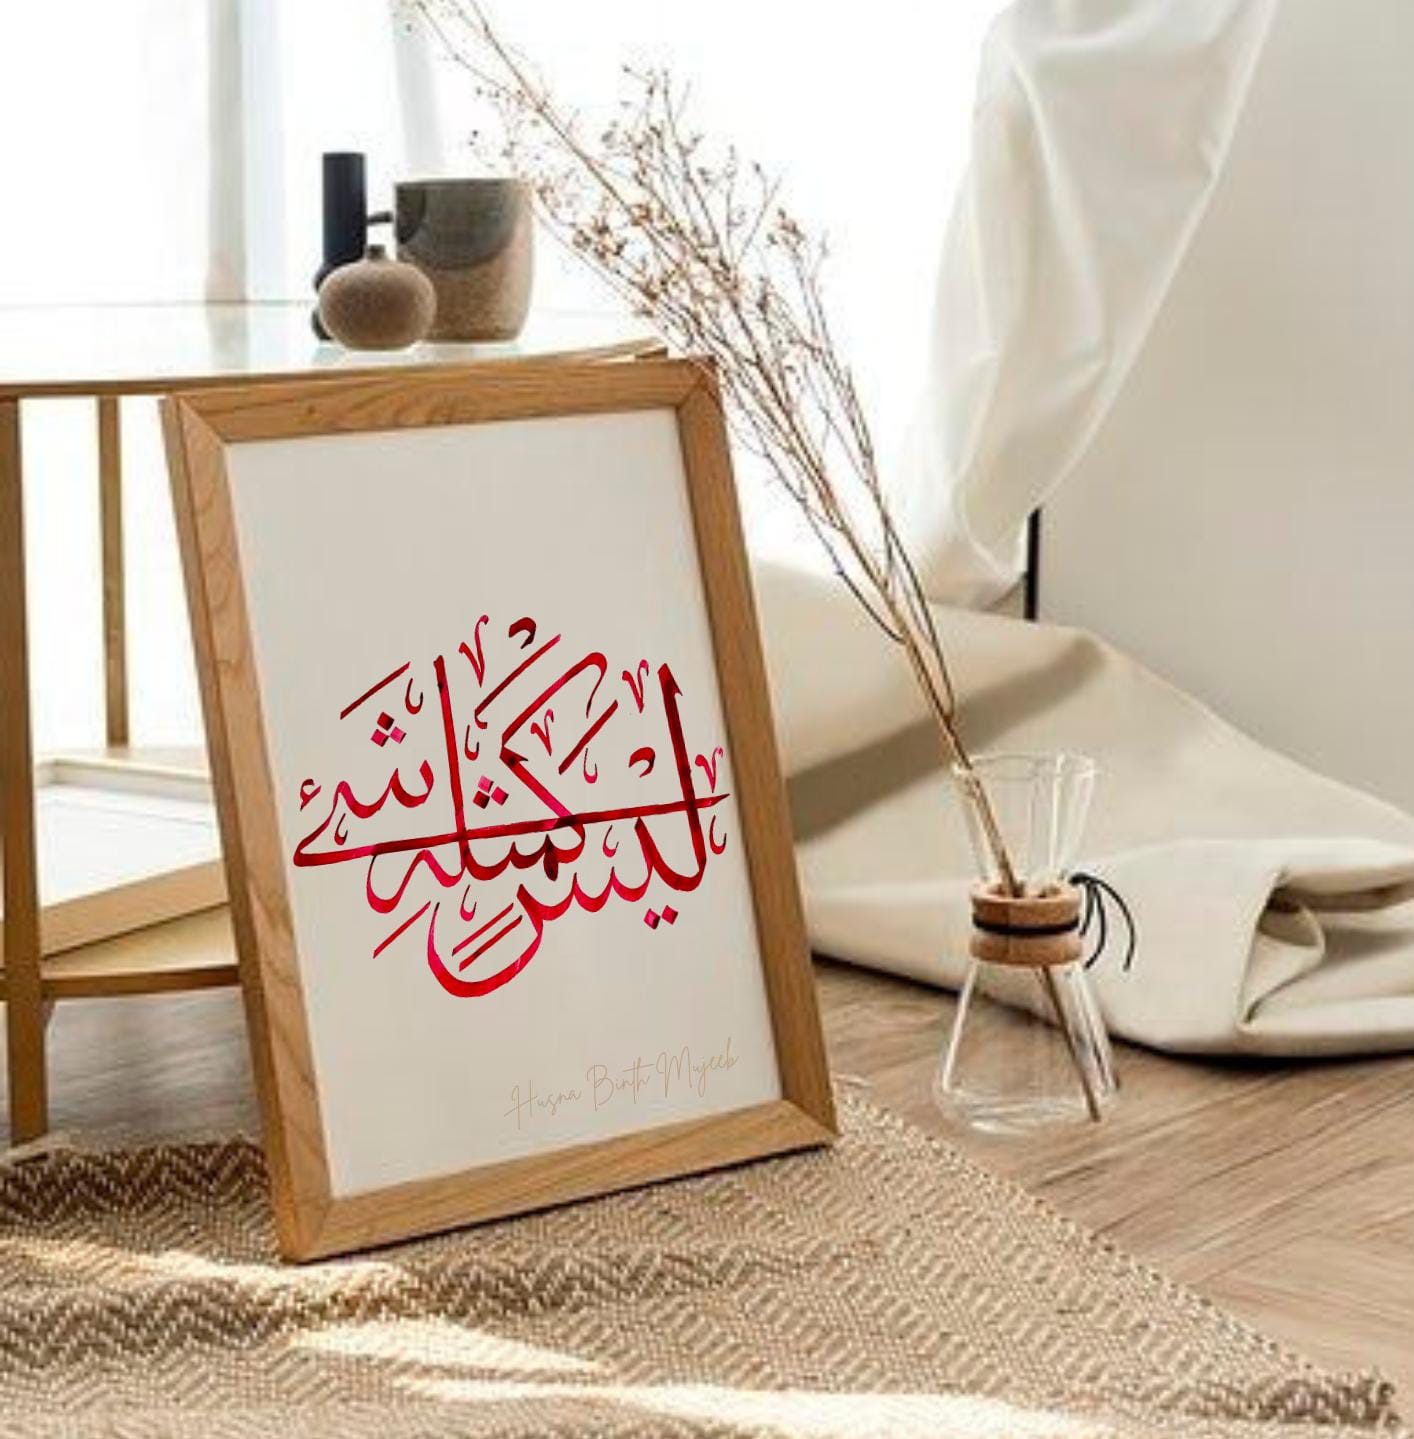 ليس كمثله شئ
Husna Binth Mujeeb